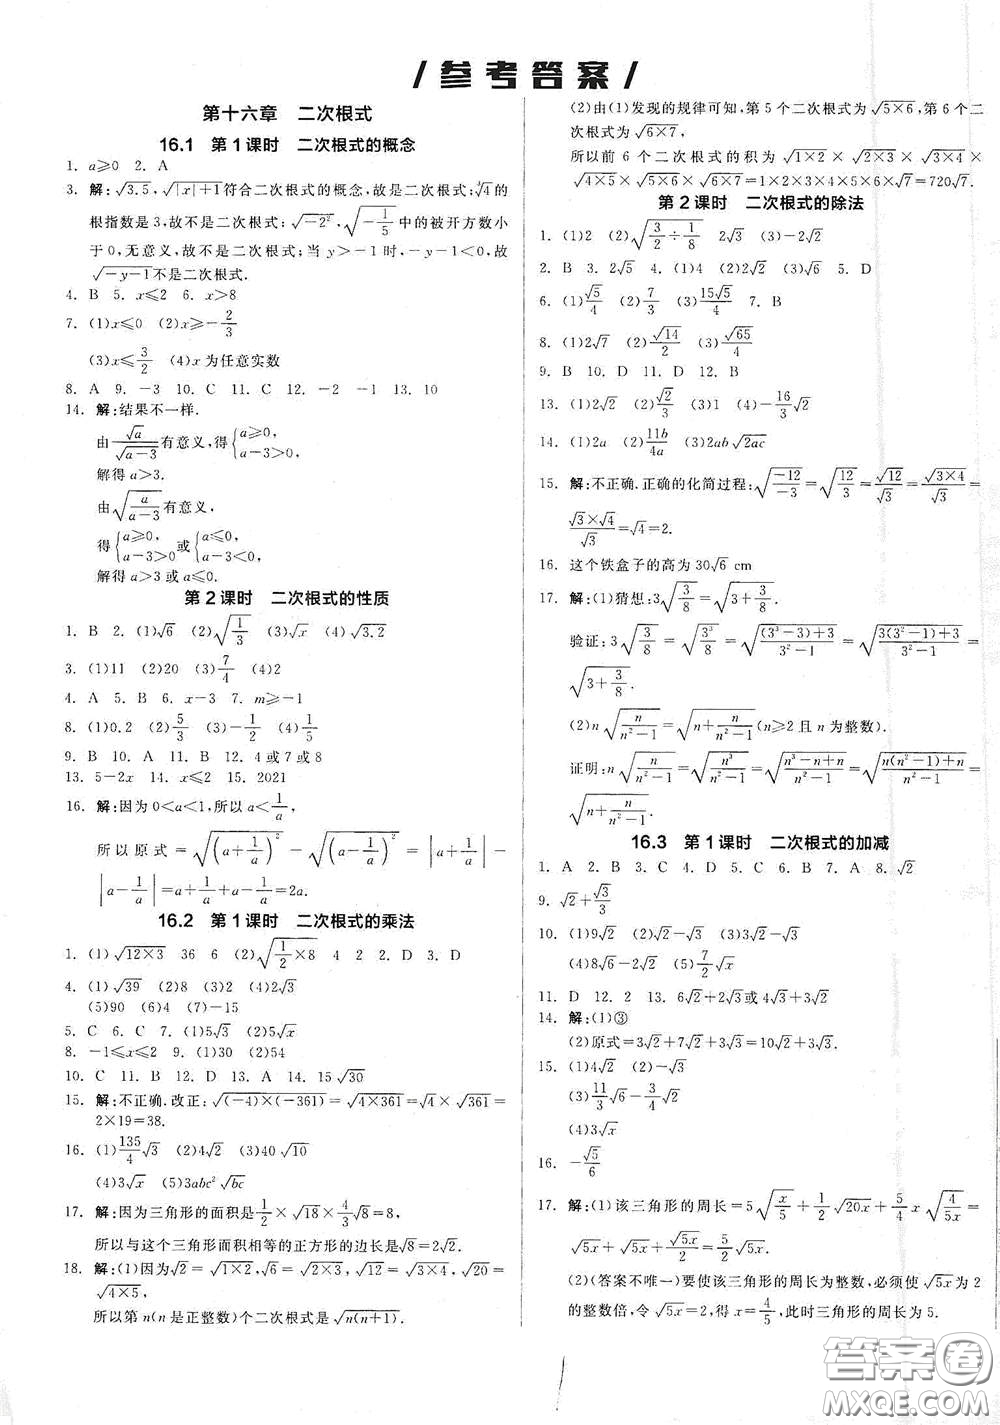 参考答案
第十六章 二次根式
16.1 第1课时 二次根式的概念
1. a≥0 2. A
3. 解:√3.5,√|x|+1符合二次根式的概念,故是二次根式;∜4的
根指数是3,故不是二次根式;√-2²,√-1/5中的被开方数小
于0,无意义,故不是二次根式;当 y>-1时,-y-1<0,故
√-y-1不是二次根式.
4. B 5. x≤2 6. x>8
7. (1)x≤0 (2)x≥-2/3
(3)x≤3/2 (4)x为任意实数
8. A 9. -3 10. C 11. C 12. -2 -1 13. 10
14. 解:结果不一样.
由√a/√a-3有意义,得{a≥0, a-3>0,
解得 a>3.
由√(a/(a-3))有意义,
得{a≥0, a-3>0或{a≤0, a-3<0,
解得 a>3 或 a≤0.
第2课时 二次根式的性质
1. B 2. (1)√6 (2)√(1/3) (3)√x (4)√3.2
3. (1)11 (2)20 (3)7/4 (4)2
4. A 5. A 6. x-3 7. m≥-1
8. (1)0.2 (2)5/3 (3)-1/2 (4)1/5
9. B 10. A 11. B 12. 4或7或8
13. 5-2x 14. x≤2 15. 2021
16. 解:因为0<a<1,所以a<1/a,
所以原式=√(a+1/a)²-√(a-1/a)²=|a+1/a|-
|a-1/a|=a+1/a+a-1/a=2a.
16.2 第1课时 二次根式的乘法
1. (1)√12×3 36 6 (2)√(1/2×8) 4 2 2. D 3. D
4. (1)√39 (2)8 (3)2 (4)2√3
(5)90 (6)-15
5. C 6. C 7. (1)5√3 (2)5√x
8. -1≤x≤2 9. (1)30 (2)54
10. C 11. B 12. D 13. A 14. 15√30
15. 解:不正确.改正:√(-4)×(-361)=√4×361=√4×√361=
2×19=38.
16. (1)135/4√3 (2)4√5 (3)40√10
(4)3√x (5)3abc²√c
17. 解:因为三角形的面积是1/2×√18×4/3√8=8,
所以与这个三角形面积相等的正方形的边长是√8=2√2.
18. 解:(1)因为√2=√1×2,√6=√2×3,√12=√3×4,√20=
√4×5,
所以第n(n是正整数)个二次根式是√n(n+1).
(2)由(1)发现的规律可知,第5个二次根式为√5×6,第6个二
次根式为√6×7,
所以前6个二次根式的积为√1×2×√2×3×√3×4×
√4×5×√5×6×√6×7=1×2×3×4×5×6×√7=720√7.
第2课时 二次根式的除法
1. (1)2 (2)√(3/2÷1/8) 2√3 (3)-2
2. B 3. 2√5 4. (1)4 (2)2√2 (3)√3 5. D
6. (1)√5/4 (2)7/3 (3)15√5/4 7. B
8. (1)2√7 (2)√14/2 (3)√65/4
9. B 10. C 11. D 12. B
13. (1)2√2 (2)√2/3 (3)1 (4)-16/3√2
14. (1)2a (2)11b/4a (3)2ab√2ac
15. 解:不正确.正确的化简过程:√(-12/-3)=√(12/3)=√12/√3=√3×4/√3=
√3×√4/√3=√4=2.
16. 这个铁盒子的高为30√6 cm
17. 解:(1)猜想:3√(3/8)=√(3+3/8).
验证:3√(3/8)=√(3³/8)=√(((3³-3)+3)/(3²-1))=√((3(3²-1)+3)/(3²-1))=
√(3+3/8).
(2)n√(n/(n²-1))=√(n+n/(n²-1))(n≥2且n为整数).
证明:n√(n/(n²-1))=√(n³/(n²-1))=√((n³-n+n)/(n²-1))=√((n(n²-1)+n)/(n²-1))=
√(n+n/(n²-1)).
16.3 第1课时 二次根式的加减
1. A 2. B 3. C 4. D 5. C 6. B 7. A 8. √2
9. √2+√3/3
10. (1)9√2 (2)4√3-√2 (3)3√2-√3
(4)8√6-2√3 (5)7/2√x
11. D 12. 2 13. 6√2+2√3或4√3+3√2
14. 解:(1)③
(2)原式=3√2+7√2+3√3=10√2+3√3.
15. (1)4√2 (2)√3-√2
(3)1/4√6-3/4√2
(4)3√x
16. -√5/6
17. 解:(1)该三角形的周长=5√(x/5)+1/2√20x+5/4x√(4/5x)=
√5x+√5x+√5x/2=5/2√5x.
(2)(答案不唯一)要使该三角形的周长为整数,必须使√5x为2
的整数倍,令√5x=2,得x=4/5,此时三角形的周长为5.
1
答案圈
MXQE.COM